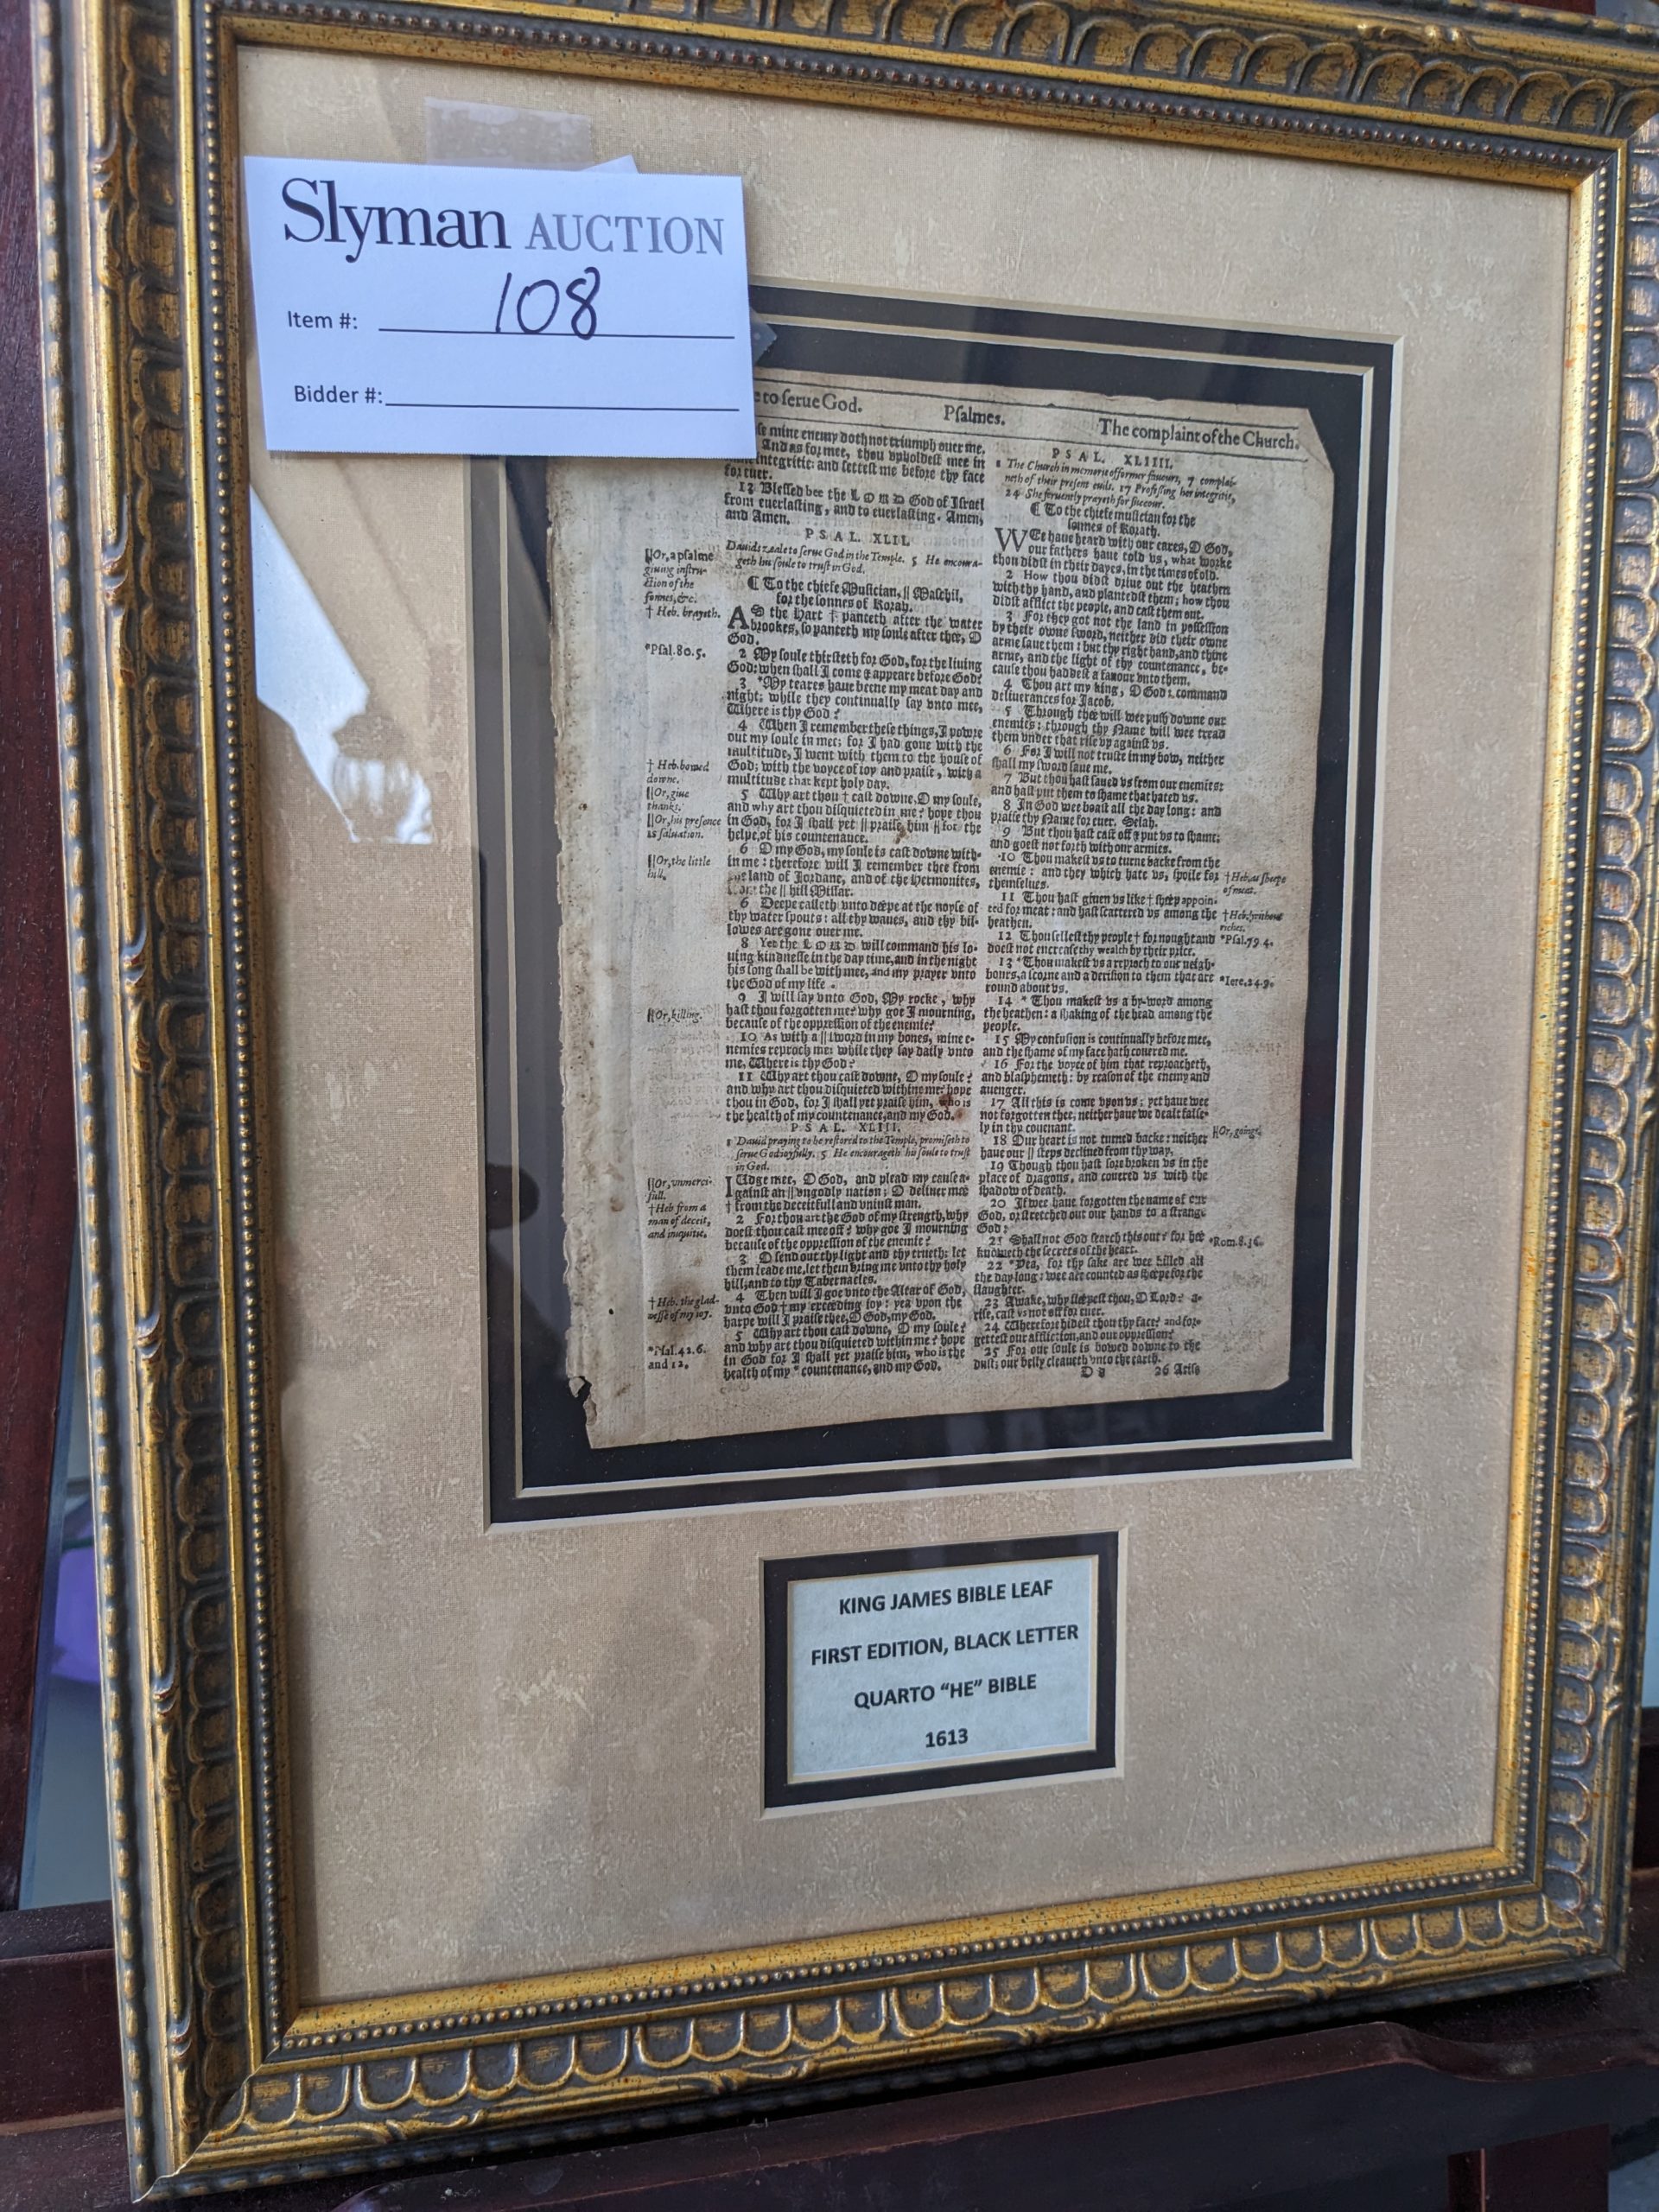 Slyman AUCTION
Item #: 108
Bidder #:
to serue God.
Psalmes.
The complaint of the Church.
mine enemy doth not triumph ouer me.
And as for mee, thou vpholdest mee in
integritie: and settest me before thy face
for euer.
13 Blessed bee the LORD God of Israel
from euerlasting, and to euerlasting. Amen,
and Amen.
PSAL. XLII.
Dauids zeale to serue God in the Temple. 5 He encoura-
geth his soule to trust in God.
¶ To the chiefe Musician, || Maschil,
for the sonnes of Korah.
AS the Hart † panteth after the water
brookes, so panteth my soule after thee, O
God.
2 My soule thirsteth for God, for the liuing
God: when shall I come & appeare before God?
3 *My teares haue beene my meat day and
night; while they continually say vnto mee,
Where is thy God?
4 When I remember these things, I powre
out my soule in mee; for I had gone with the
multitude, I went with them to the house of
God; with the voyce of ioy and praise, with a
multitude that kept holy day.
5 Why art thou † cast downe, O my soule,
and why art thou disquieted in me? hope thou
in God, for I shall yet || praise him || for the
helpe of his countenance.
6 O my God, my soule is cast downe with-
in me: therefore will I remember thee from
land of Jordane, and of the Hermonites,
the || hill Missar.
6 Deepe calleth vnto deepe at the noyse of
thy water spouts: all thy waues, and thy bil-
lowes are gone ouer me.
8 Yet the LORD will command his lo-
uing kindnesse in the day time, and in the night
his song shall be with mee, and my prayer vnto
the God of my life.
9 I will say vnto God, My rocke, why
hast thou forgotten me? why goe I mourning,
because of the oppression of the enemie?
10 As with a || sword in my bones, mine e-
nemies reproch me: while they say daily vnto
me, Where is thy God?
11 Why art thou cast downe, O my soule?
and why art thou disquieted within me? hope
thou in God, for I shall yet praise him, who is
the health of my countenance, and my God.
PSAL. XLIII.
1 Dauid praying to be restored to the Temple, promiseth to
serue God ioyfully. 5 He encourageth his soule to trust
in God.
IUdge mee, O God, and plead my cause a-
gainst an || vngodly nation; O deliuer mee
† from the deceitfull and vniust man.
2 For thou art the God of my strength, why
doest thou cast mee off? why goe I mourning
because of the oppression of the enemie?
3 O send out thy light and thy trueth: let
them leade me, let them bring me vnto thy holy
hill, and to thy Tabernacles.
4 Then will I goe vnto the Altar of God,
vnto God † my exceeding ioy: yea vpon the
harpe will I praise thee, O God, my God.
5 Why art thou cast downe, O my soule?
and why art thou disquieted within me? hope
in God for I shall yet praise him, who is the
health of my * countenance, and my God.
||Or, a psalme
giuing instru-
ction of the
sonnes, &c.
† Heb. brayeth.
*Psal. 80. 5.
† Heb. bowed
downe.
||Or, giue
thanks.
||Or, his presence
is saluation.
||Or, the little
hill.
||Or, killing.
||Or, vnmerci-
full.
†Heb from a
man of deceit,
and iniquitie.
†Heb. the glad-
nesse of my ioy.
*Psal. 42. 6.
and 12.
PSAL. XLIIII.
1 The Church in memorie of former fauours, 7 complai-
neth of their present euils. 17 Professing her integritie,
24 She feruently prayeth for succour.
¶ To the chiefe musician for the
sonnes of Korah.
WEe haue heard with our eares, O God,
our fathers haue told vs, what worke
thou didst in their dayes, in the times of old.
2 How thou didst driue out the heathen
with thy hand, and plantedst them; how thou
didst afflict the people, and cast them out.
3 For they got not the land in possession
by their owne sword, neither did their owne
arme saue them: but thy right hand, and thine
arme, and the light of thy countenance, be-
cause thou haddest a fauour vnto them.
4 Thou art my king, O God: command
deliuerances for Jacob.
5 Through thee will wee push downe our
enemies: through thy Name will wee tread
them vnder that rise vp against vs.
6 For I will not truste in my bow, neither
shall my sword saue me.
7 But thou hast saued vs from our enemies:
and hast put them to shame that hated vs.
8 In God wee boast all the day long: and
praise thy Name for euer. Selah.
9 But thou hast cast off & put vs to shame;
and goest not forth with our armies.
10 Thou makest vs to turne backe from the
enemie: and they which hate vs, spoile for
themselues.
11 Thou hast giuen vs like † sheep appoin-
ted for meat: and hast scattered vs among the
heathen.
12 Thou sellest thy people † for nought and
doest not encrease thy wealth by their price.
13 *Thou makest vs a reproch to our neigh-
bours, a scorne and a derision to them that are
round about vs.
14 * Thou makest vs a by-word among
the heathen: a shaking of the head among the
people.
15 My confusion is continually before mee,
and the shame of my face hath couered me.
16 For the voyce of him that reproacheth,
and blasphemeth: by reason of the enemy and
auenger.
17 All this is come vpon vs; yet haue wee
not forgotten thee, neither haue we dealt false-
ly in thy couenant.
18 Our heart is not turned backe: neither
haue our || steps declined from thy way,
19 Though thou hast sore broken vs in the
place of dragons, and couered vs with the
shadow of death.
20 If wee haue forgotten the name of our
God, or stretched out our hands to a strange
God:
21 Shall not God search this out? for hee
knoweth the secrets of the heart.
22 *Yea, for thy sake are wee killed all
the day long: wee are counted as sheepe for the
slaughter.
23 Awake, why sleepest thou, O Lord? a-
rise, cast vs not off for euer.
24 Wherefore hidest thou thy face? and for-
gettest our affliction, and our oppression?
25 For our soule is bowed downe to the
dust; our belly cleaueth vnto the earth.
26 Arise
†Heb. as sheepe
of meat.
†Heb. without
riches.
*Psal. 79. 4.
*Iere. 24. 9.
||Or, goings.
*Rom. 8. 36.
KING JAMES BIBLE LEAF
FIRST EDITION, BLACK LETTER
QUARTO “HE” BIBLE
1613